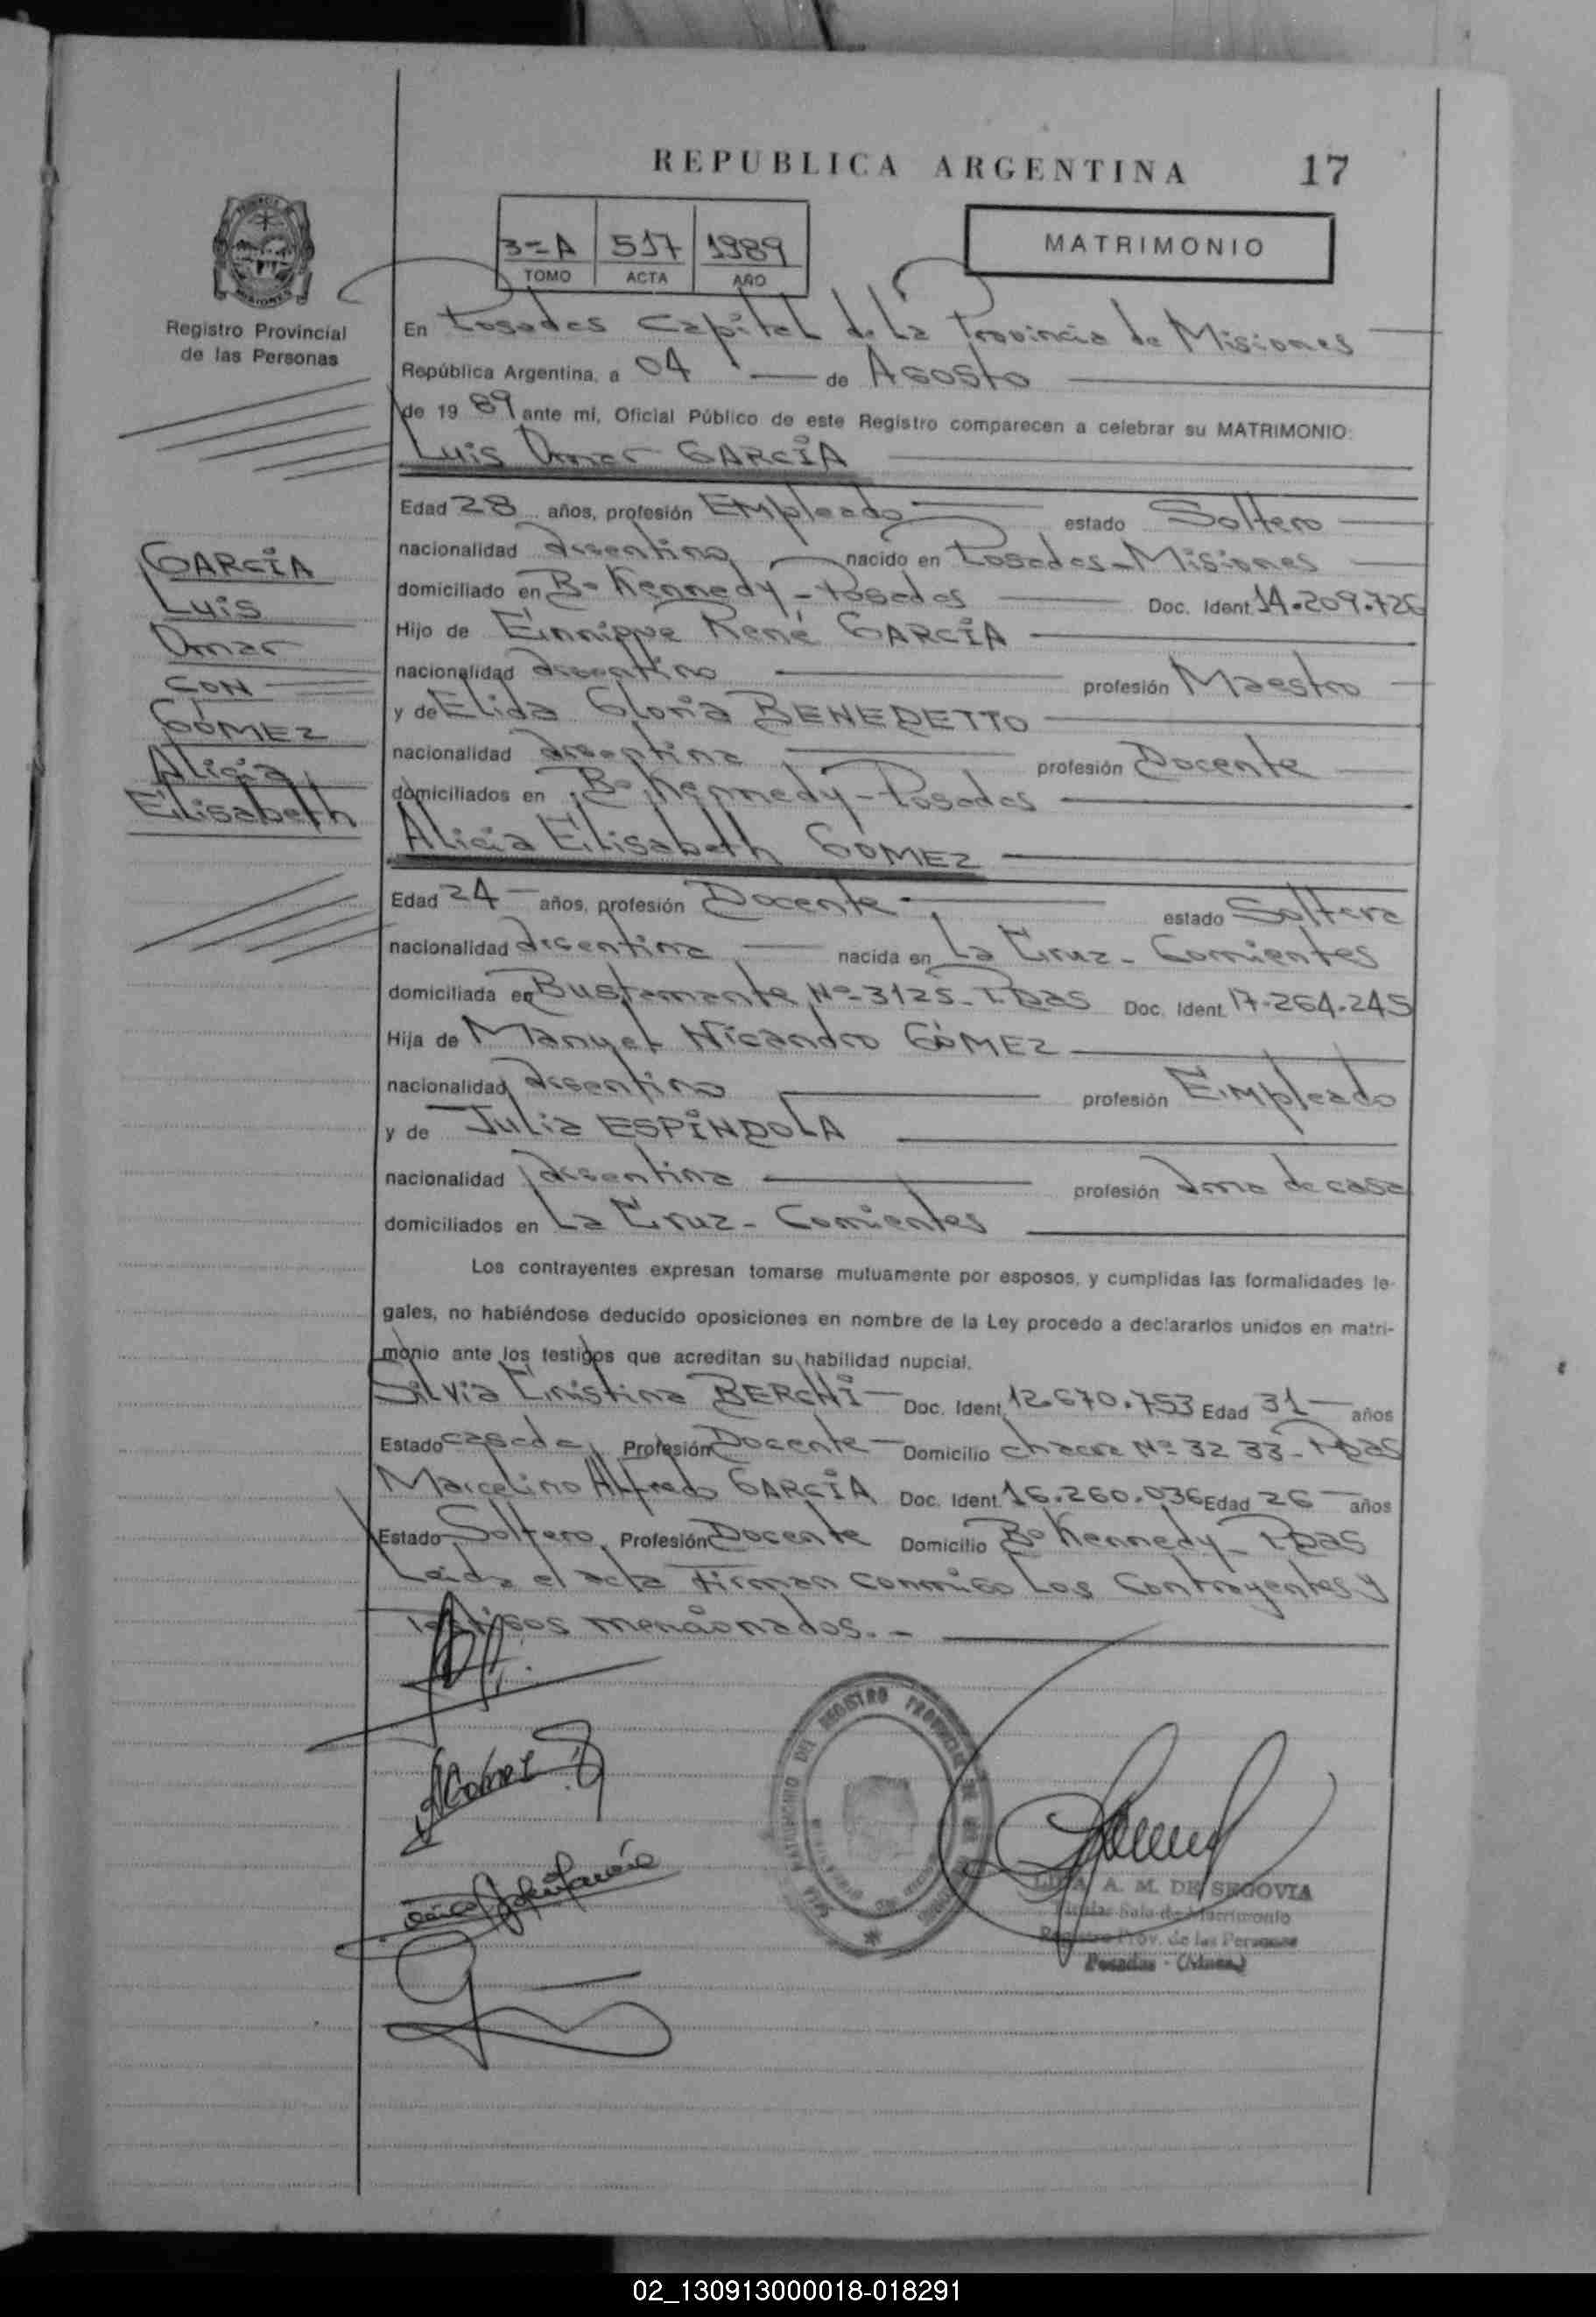 REPUBLICA ARGENTINA 17
3=A 517 1989
TOMO ACTA AÑO
MATRIMONIO
Registro Provincial
de las Personas
En Posadas Capital de La Provincia de Misiones
República Argentina, a 04 de Agosto
de 19 89 ante mí, Oficial Público de este Registro comparecen a celebrar su MATRIMONIO:
Luis Omar GARCÍA
Edad 28 años, profesión Empleado estado Soltero
nacionalidad argentino nacido en Posadas-Misiones
domiciliado en Bº Kennedy-Posadas Doc. Ident. 14.209.726
Hijo de René GARCÍA
nacionalidad argentino profesión Maestro
y de Elida Gloria BENEDETTO
nacionalidad argentina profesión Docente
domiciliados en Bº Kennedy-Posadas
GARCÍA
Luis
Omar
CON
GÓMEZ
Alicia
Elisabeth
Alicia Elisabeth GOMEZ
Edad 24 años, profesión Docente estado Soltera
nacionalidad argentina nacida en La Cruz-Corrientes
domiciliada en Bustamante Nº 3125-Pdas Doc. Ident. 17.264.245
Hija de Manuel Nicandro GÓMEZ
nacionalidad argentino profesión Empleado
y de Julia ESPÍNDOLA
nacionalidad argentina profesión ama de casa
domiciliados en La Cruz-Corrientes
Los contrayentes expresan tomarse mutuamente por esposos, y cumplidas las formalidades le-
gales, no habiéndose deducido oposiciones en nombre de la Ley procedo a declararlos unidos en matri-
monio ante los testigos que acreditan su habilidad nupcial.
Silvia Cristina BERCHI Doc. Ident. 12.670.753 Edad 31 años
Estado casada Profesión Docente Domicilio chacra Nº 32 33-Pdas
Marcelino Alfredo GARCÍA Doc. Ident. 16.260.036 Edad 26 años
Estado Soltero Profesión Docente Domicilio Bº Kennedy-Pdas
Leída el acta Firman conmigo Los Contrayentes y
Testigos mencionados.-
A. M. DE SEGOVIA
Titular Sala de Matrimonio
Registro Prov. de las Personas
Posadas - (Mnes.)
02_130913000018-018291